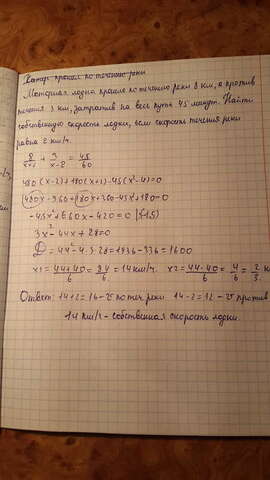 Катер прошел по течению реки
Моторная лодка прошла по течению реки 8 км, а против
течения 3 км, затратив на весь путь 45 минут. Найти
собственную скорость лодки, если скорость течения реки
равна 2 км/ч.
8/(x+2) + 3/(x-2) = 45/60
480(x-2)+180(x+2)-45(x²-4)=0
480x-960+180x+360-45x²+180=0
-45x²+660x-420=0 |(-15)
3x²-44x+28=0
D=44²-4·3·28=1936-336=1600
x1=(44+40)/6=84/6=14км/ч. x2=(44-40)/6=4/6=2/3
Ответ: 14+2=16-V по теч. реки. 14-2=12-V против
14 км/ч-собственная скорость лодки.